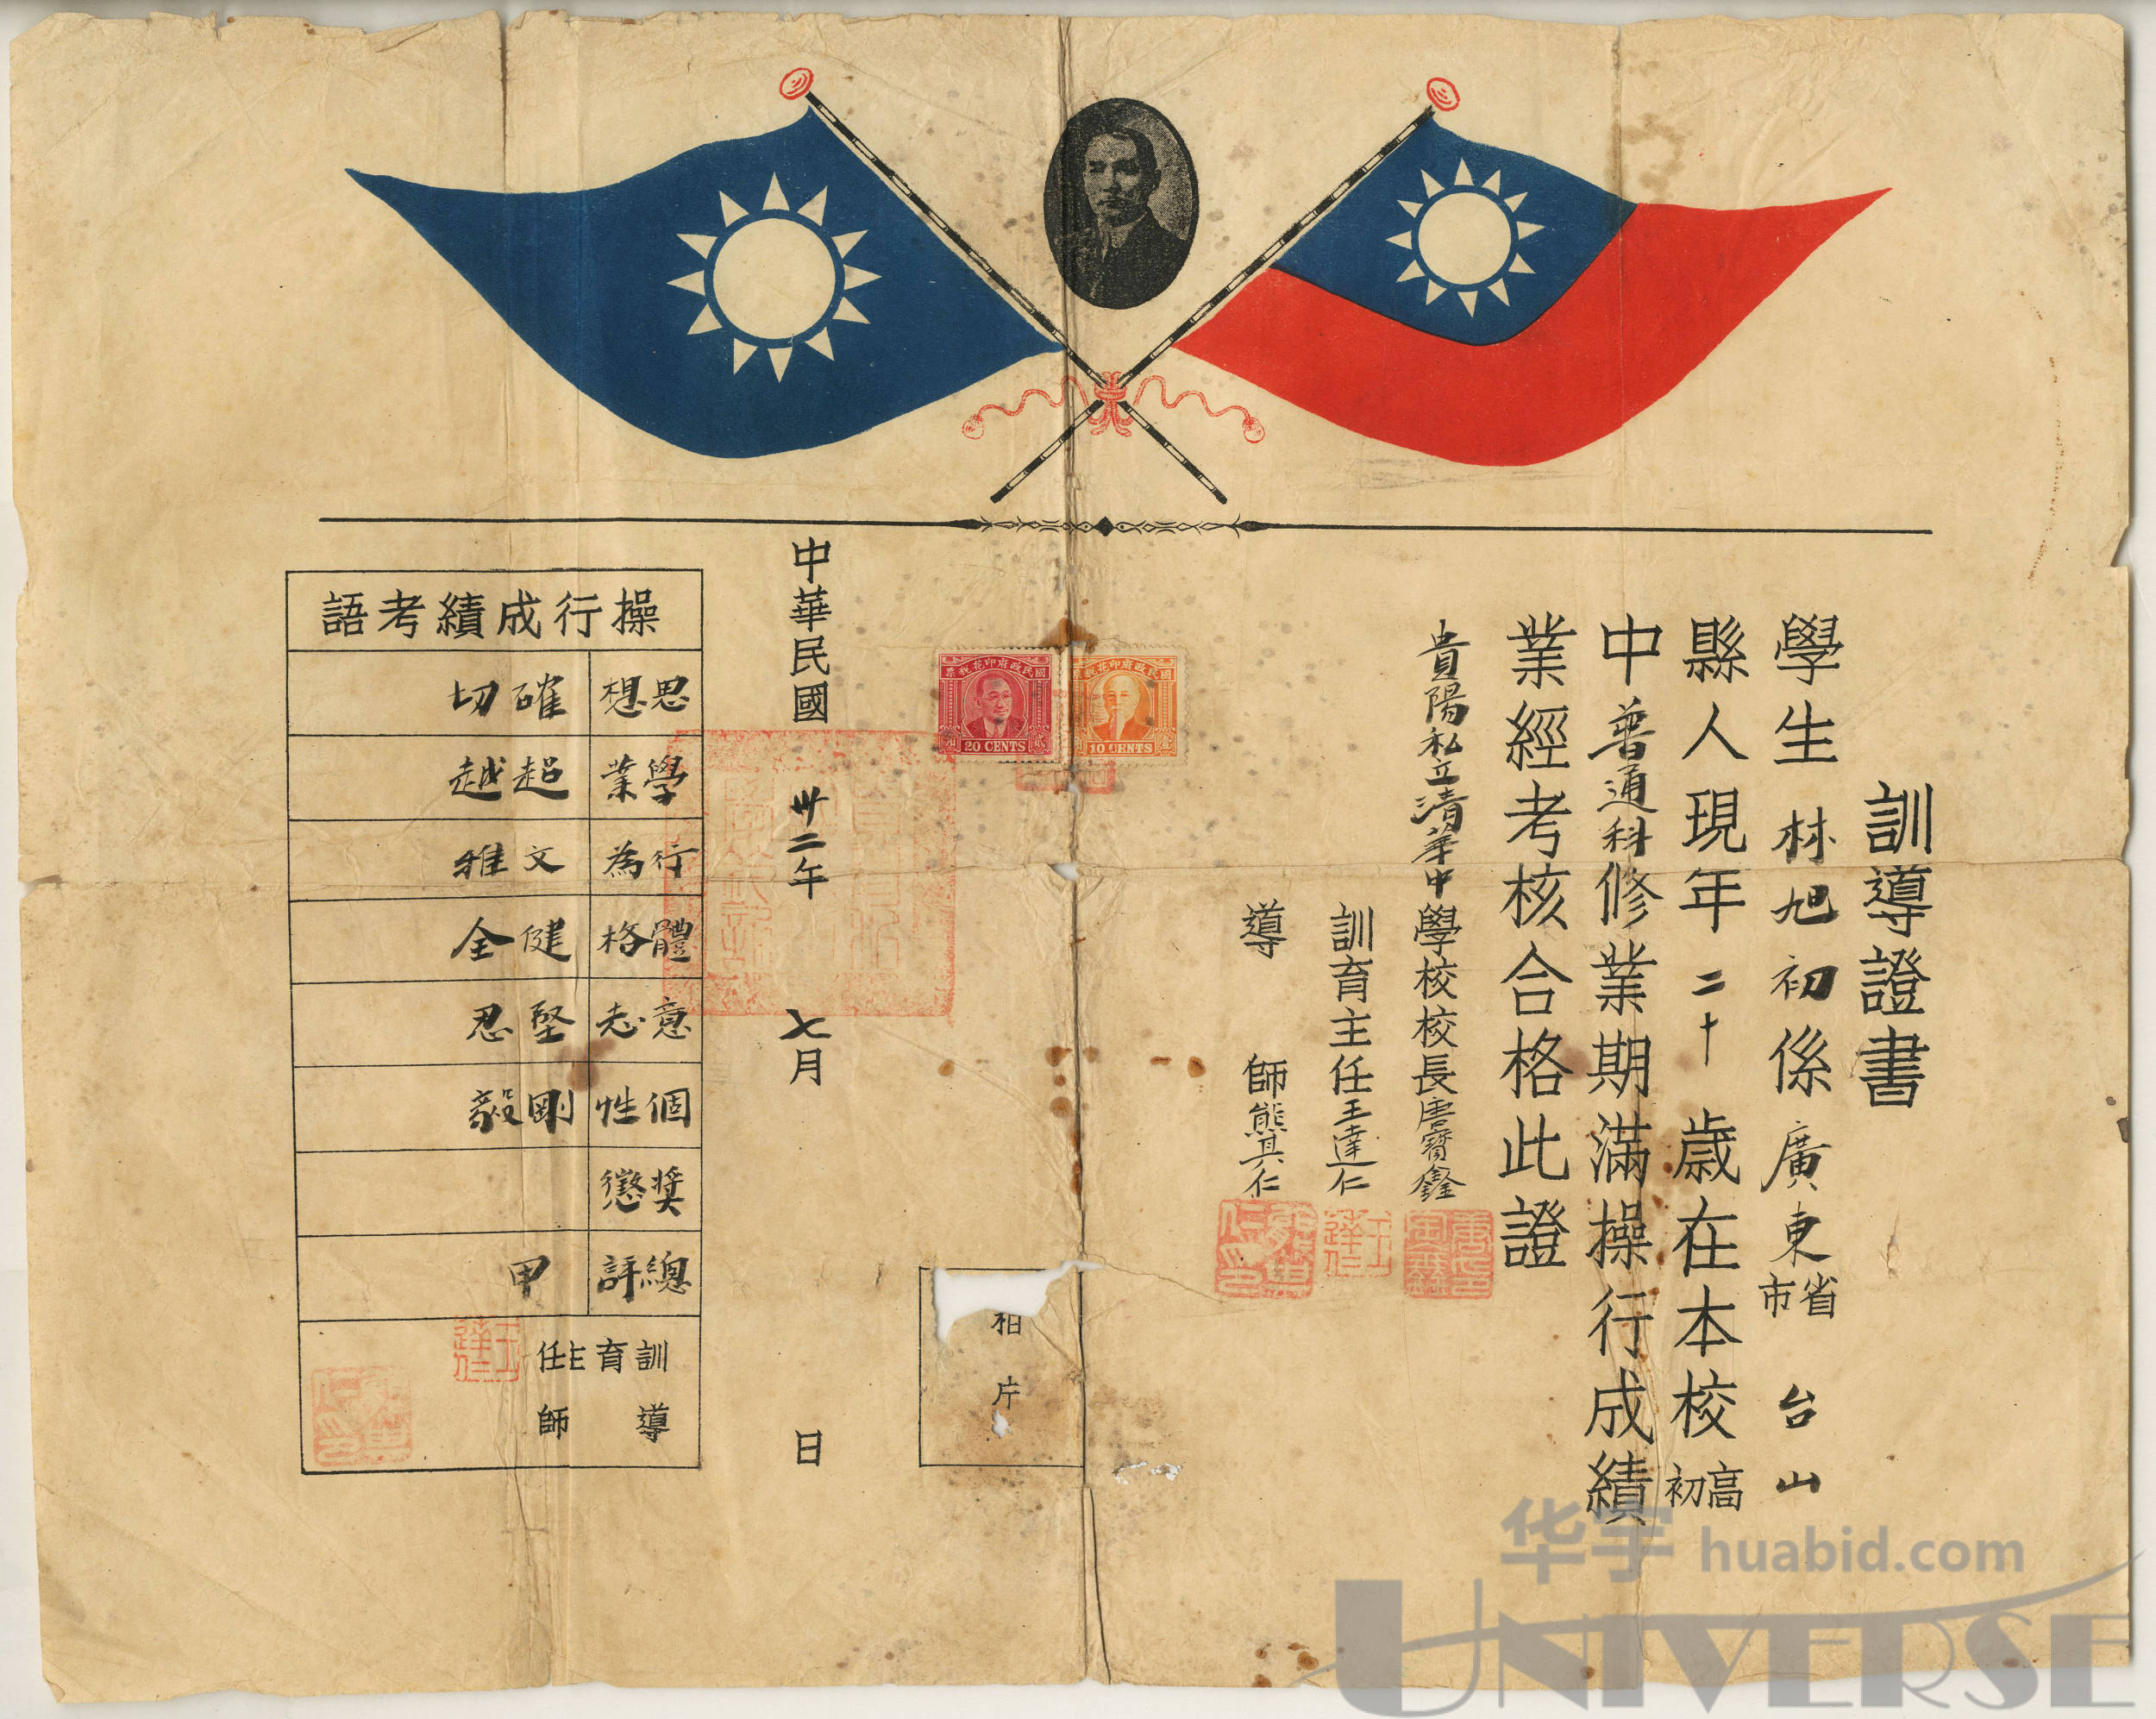 訓導證書
學生林旭初係廣東省市台山
縣人現年二十歲在本校高初
中普通科修業期滿操行成績
業經考核合格此證
貴陽私立清華中學校校長唐寶鑫
訓育主任王達仁
導師熊其仁
國民政府印花稅票
10 CENTS
國民政府印花稅票
20 CENTS
相片
中華民國卅二年七月日
操行成績考語
思想 確切
學業 超越
行為 文雅
體格 健全
意志 堅忍
個性 剛毅
獎懲
總評 甲
訓育主任
導師
华宇 huabid.com
UNIVERSE